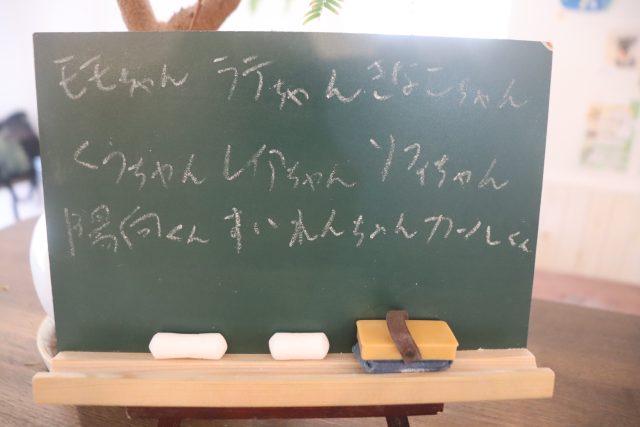 モモちゃん ラテちゃん きなこちゃん
くうちゃん レイアちゃん ソフィちゃん
陽向くん すいれんちゃん カールくん